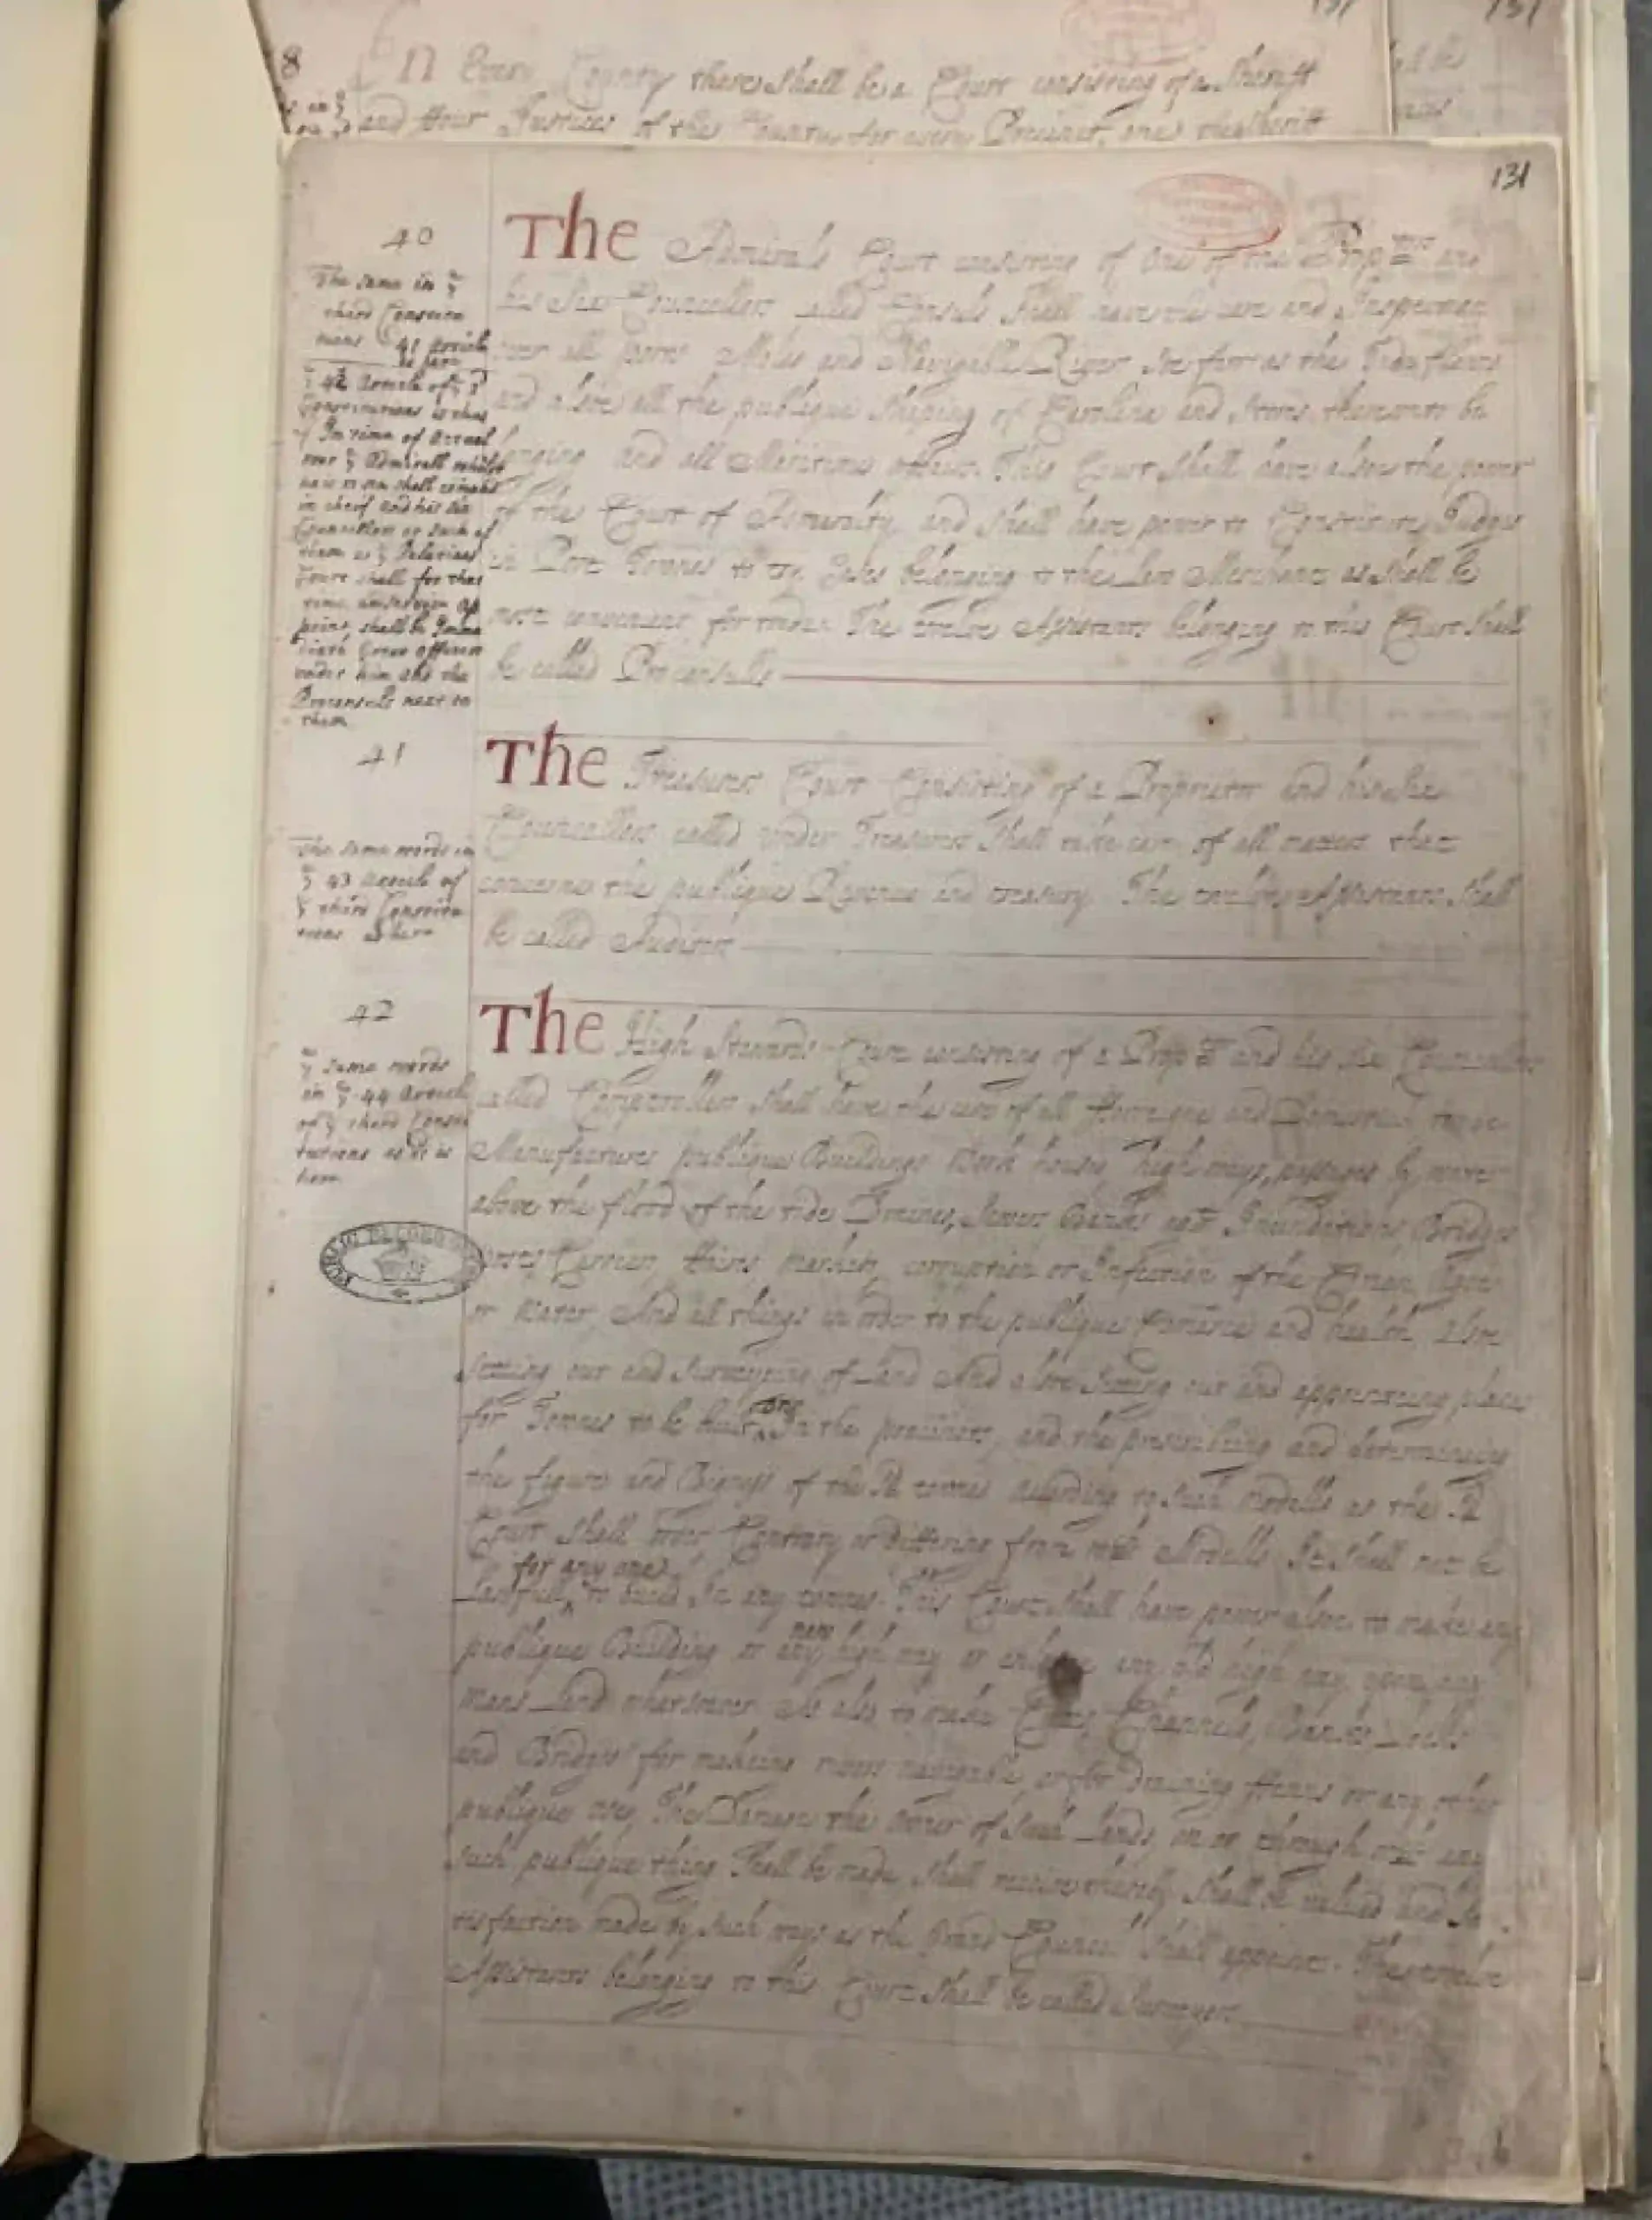 8
In Every County there Shall be a Court consisting of a Sheriff
and ffour Justices of the County for every Precinct, one the Sheriff
131
40
The Admirals Court consisting of one of the Prop:tors and
his Six Councellers called Consuls Shall have the care and Inspection
over all ports Moles and Navigable River Soe farr as the Tide flowes
and alsoe all the publique Shiping of Carolina and stores thereunto be
longing and all Maritime affairs. This Court Shall have alsoe the power
of the Court of Admiralty, and Shall have power to Constitute Judges
in Port Townes to try Cases belonging to the Law Merchant as Shall be
most convenient for trade. The twelve Assistants belonging to this Court Shall
be called Proconsulls
The same in ye
third Constitu
tions 41 Article
as here
ye 42 Article of ye 3d
Constitutions is thus
In time of Actual
warr ye Admirall whilst
he is at sea shall comand
in cheif and his six
Councellors or such of
them as ye Palatines
Court shall for that
time and service ap
point shall be Imme
diate Great officers
under him and the
Proconsuls next to
them
41
The Treasurers Court Consisting of a Proprietor and his Six
Councellors called under Treasurers Shall take care of all matters that
concerne the publique Revenue and treasury. The twelve Assistants Shall
be called Auditors
The same words in
ye 43 Article of
ye third Constitu
tions as here
42
The High Stewards Court consisting of a Prop:tor and his Six Councellers
called Comptrollers Shall have the care of all fforraigne and Domestick trade
Manufactures publique Buildings Work houses, high ways, passages by water
above the flood of the tide Draines, Sewers Banks agst Inunditions Bridges
Posts, Carriers, ffaires markets, corruption or Infection of the Comon Ayre
or Water And all things in order to the publique Comerce and health, alsoe
setting out and Surveying of Land And alsoe Setting out and appointing places
for Townes to be built on In the precincts, and the prescribing and determineing
the figure and Bigness of the sd townes according to Such modells as the sd
Court Shall order Contrary or differing from wch Modells It Shall not be
Lawfull for any one to build In any townes. This Court Shall have power alsoe to make any
publique Building or any new high way or enlarge any old high way upon any
mans Land whatsoever As also to make Cutts, Channels, Banks, Locks
and Bridges for makeing rivers navigable, or for Draining ffenns or any other
publique use, The Damage the owner of Such Lands, on or through wch any
such publique thing Shall be made, Shall receive thereby Shall be valued and Sa
tisfaction made by Such ways as the Grand Councel Shall appoint. The twelve
Assistants belonging to this Court Shall be called Surveyors
ye same words
in ye 44 Article
of ye third Consti
tutions as it is
here
PUBLIC RECORD OFFICE